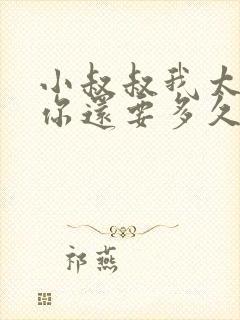 小叔叔我大
你還要多久
祁燕